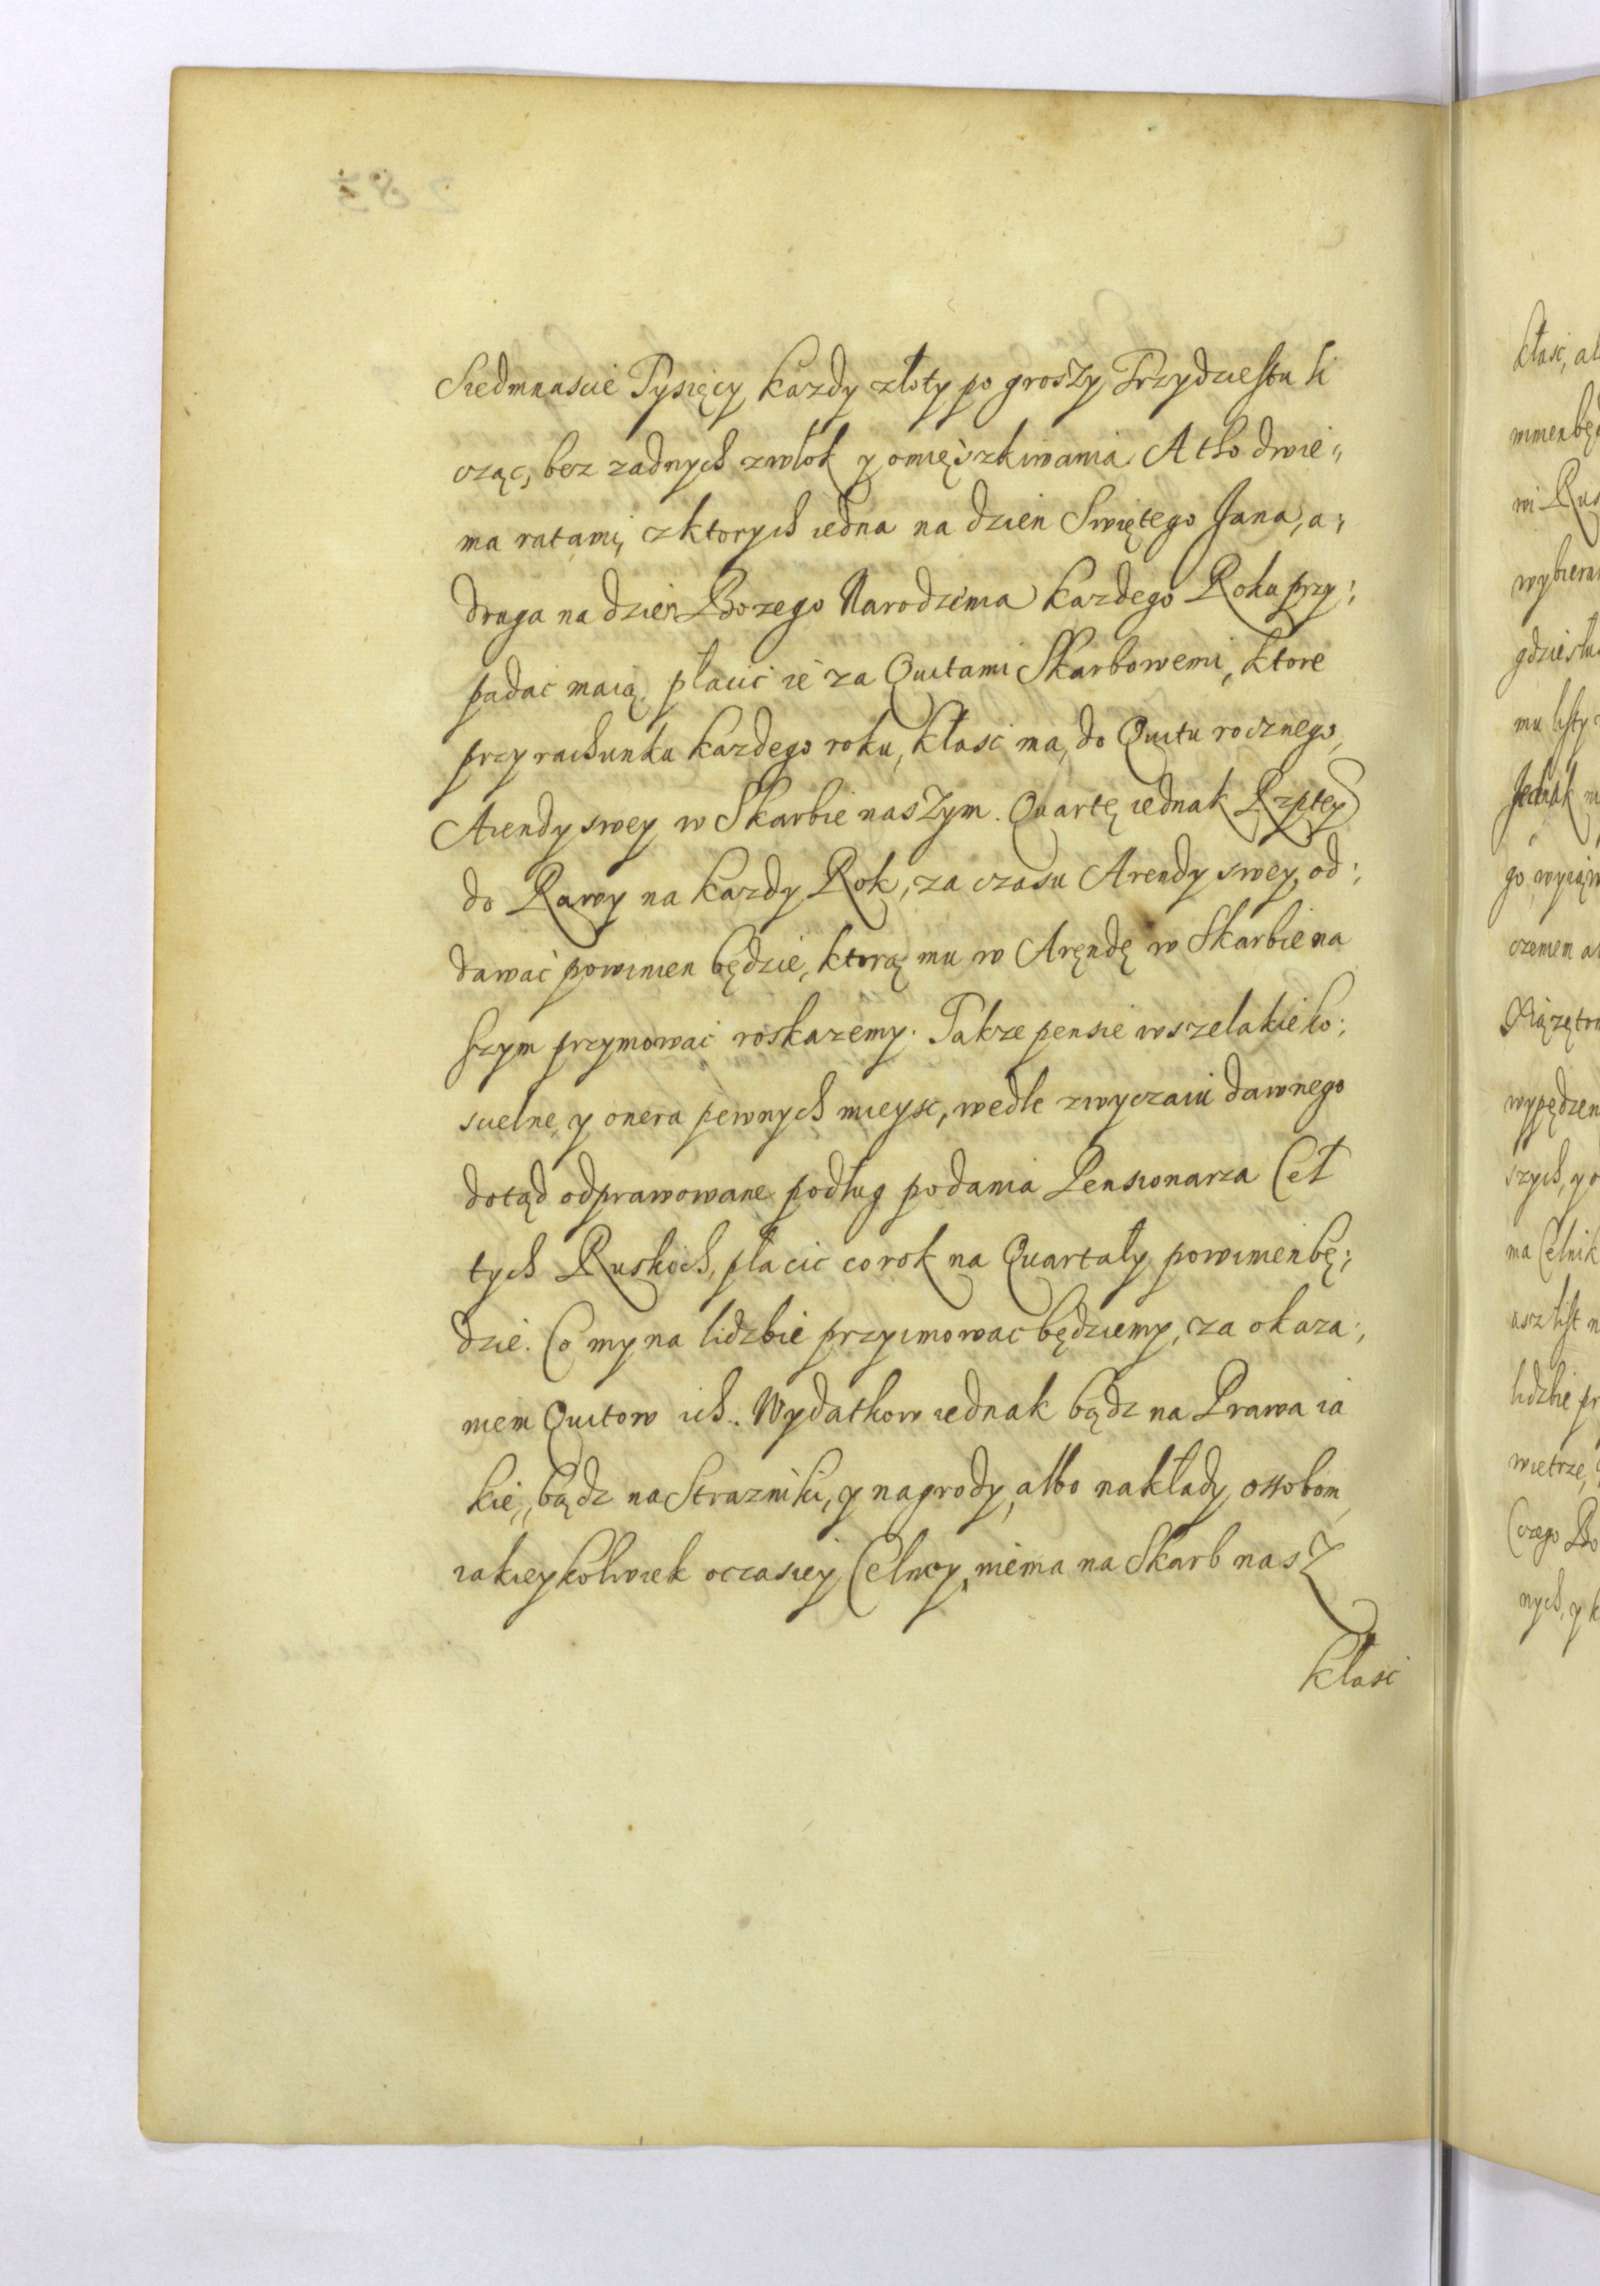 Siedmnascie Tysięcy kazdy złoty po groszy Trzydziestu li
cząc, bez zadnych zwłok y omięszkiwania. A tho dwie„
ma ratami, z ktorych iedna na dzien Swiętego Jana, a„
druga na dzien Bozego Narodzenia kazdego Roku przy„
padac maią. płacic ie za Quitami Skarbowemi, ktore
przy rachunku kazdego roku, kłasc ma, do Quitu rocznego,
Arendy swey w Skarbie naszym. Quartę iednak Rzptey
do Rawy na kazdy Rok, za czasu Arendy swey, od„
dawać powinien będzie, ktorą mu w Arendę w Skarbie na
szym przymować roskazemy. Takze pensie wszelakie ko„
scielne y onera pewnych mieysc, wedle zwyczaiu dawnego
dotąd odprawowane podług podania Pensionarza Ceł
tych Ruskich, płacic co rok na Quartały powinien bę„
dzie. Co my na lidzbie przyimowac będziemy, za okaza„
niem Quitow ich. Wydatkow iednak bądz na Prawa ia
kie„ bądz na Strazniki, y nagrody, albo nakłady, ossobom
iakieykolwiek occasiey Celney, niema na Skarb nasz
kłasc
kłasc, al
winien bę
wi Rus
wybiera
gdzie słu
mu listy
Jednak
go, wyiąw
czemem
Xiązęto
wypędzen
szych, y o
ma Celnik
asz list n
lidzbie pr
wietrze,
Czego Bo
nych, y k